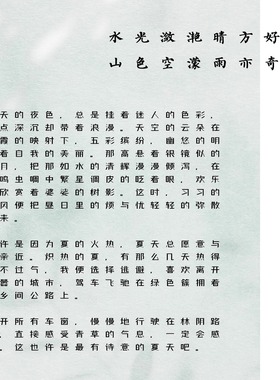 水光潋滟晴方好
山色空濛雨亦奇
天的夜色，总是挂着迷人的色彩，
点深沉却带着浪漫。天空的云朵在
霞的映射下，五彩缤纷，幽悠的明
着自我的美丽。那高悬着银镜似的
月，把那如水的清辉漫漫倾泻，在
鸣虫唱中繁星调皮的眨着眼，欢乐
欣赏着婆娑的树影。这时，习习的
风便把昼日里的烦与忧轻轻的弥散
来。
许是因为夏的火热，夏天总愿意与
亲近。炽热的夏，有那么几天热得
不过气，我便选择逃避，喜欢离开
嚣的城市，驾车飞驰在绿色簇拥着
乡间公路上。
开所有车窗，慢慢地行驶在林阴路
，直接感受青草的气息，一定会感
。这也许是最有诗意的夏天吧。